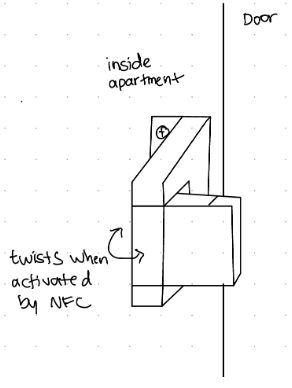 Door
inside
apartment
twists when
activated
by NFC